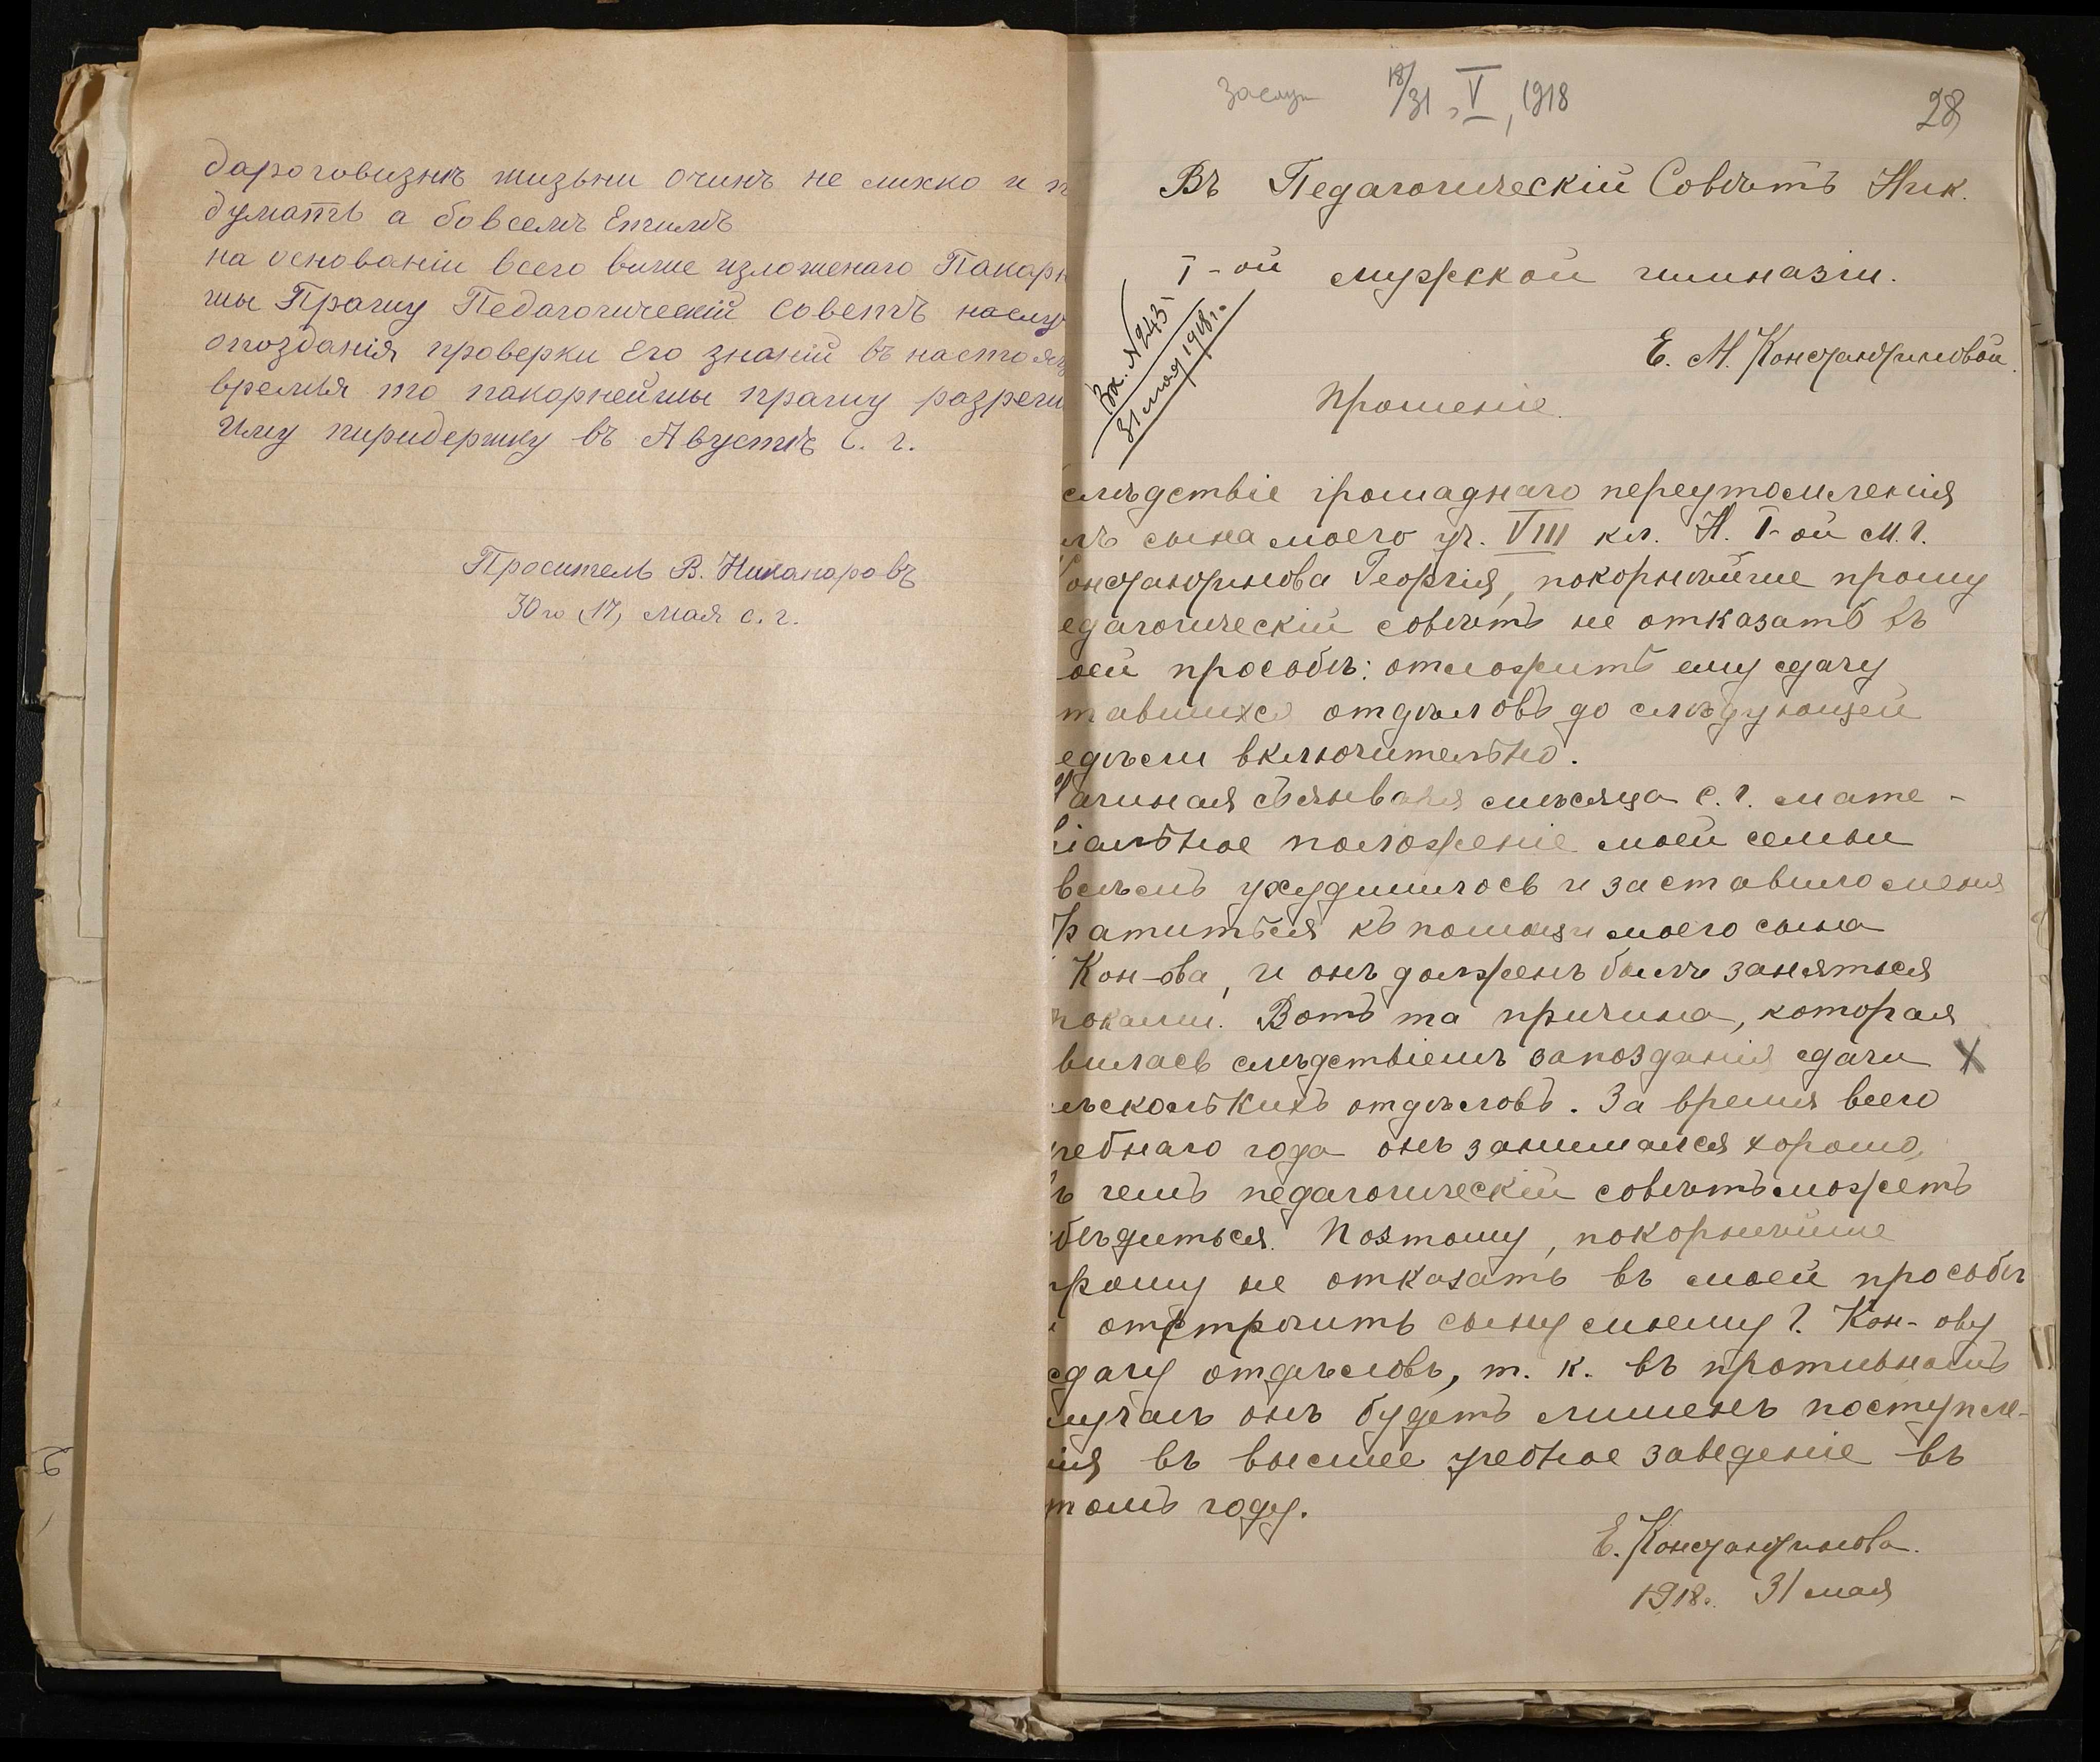 дароговизнѣ жизьни очинь не лихко и п
думать а бовсемъ Етимъ
на основаніи всего више изложенаго Пакарн
шы Прашу Педагогическій Советъ наслу
опозданія проверки Его знаній въ настоящ
время то пакорнейшы прашу разреш
Иму пиридержку въ Августѣ с. г.
Проситель В. Никаноровъ
30го (17) мая с. г.
Заслуш 18/31 V, 1918
28
Въ Педагогическій Совѣтъ Ник.
I-ой мужской гимназіи.
Вх. N243
31 мая 1918 г.
Е. М. Константиновой.
Прошеніе.
слѣдствіе громаднаго переутомленія
сына моего уч. VIII кл. Н. I-ой М. Г.
Константинова Георгія, покорнѣйше прошу
едагогическій совѣтъ не отказать въ
оей просьбѣ: отложить ему сдачу
тавшихся отдѣловъ до слѣдующей
едѣли включительно.
Начиная съ января мѣсяца с. г. мате-
ріальное положеніе моей семьи
всѣмъ ухудшилось и заставило меня
ратиться къ помощи моего сына
Кон-ова, и онъ долженъ былъ заняться
роками. Вотъ та причина, которая
вилась слѣдствіемъ запозданія сдачи
ѣсколькихъ отдѣловъ. За время всего
чебнаго года онъ занимался хорошо,
въ чемъ педагогическій совѣтъ можетъ
бѣдиться. Поэтому, покорнѣйше
прошу не отказать въ моей просьбѣ
и отстрочить сыну моему Г. Кон-ову
сдачу отдѣловъ, т. к. въ противномъ
лучаѣ онъ будетъ лишенъ поступле-
нія въ высшее учебное заведеніе въ
томъ году.
Е. Константинова.
1918 г. 31 мая